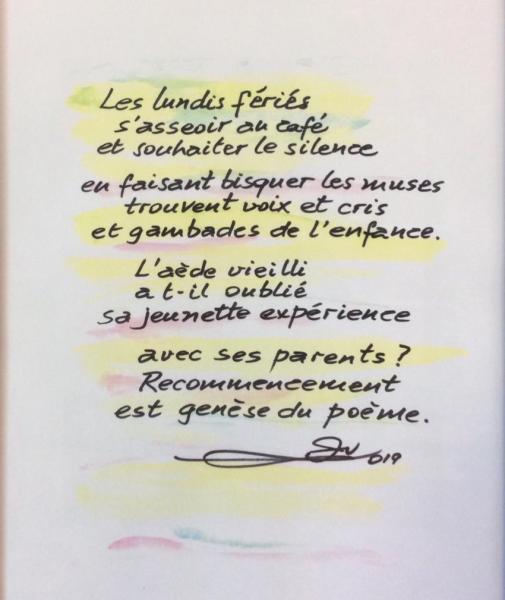 Les lundis fériés
s'asseoir au café
et souhaiter le silence
en faisant bisquer les muses
trouvent voix et cris
et gambades de l'enfance.
L'aède vieilli
a t-il oublié
sa jeunette expérience
avec ses parents ?
Recommencement
est genèse du poème.
019